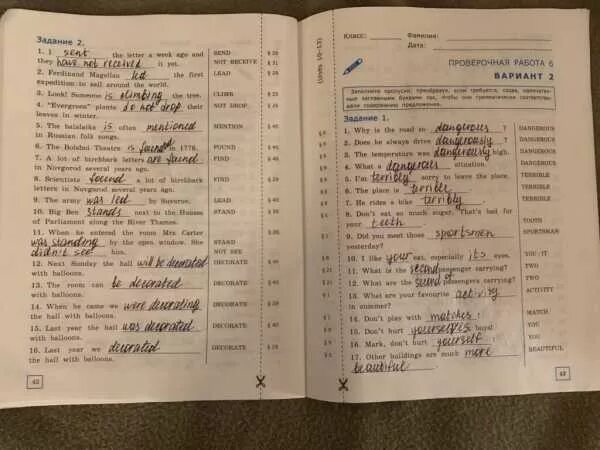 Задание 2.
1. I sent the letter a week ago and SEND § 26
they have not received it yet. NOT RECEIVE § 31
2. Ferdinand Magellan led the first LEAD § 26
expedition to sail around the world.
3. Look! Someone is climbing the tree. CLIMB
4. "Evergreen" plants do not drop their NOT DROP
leaves in winter.
5. The balalaika is often mentioned MENTION § 40
in Russian folk songs.
6. The Bolshoi Theatre is founded in 1776. FOUND § 40
7. A lot of birchbark letters are found FIND § 40
in Novgorod several years ago.
8. Scientists found a lot of birchbark FIND § 26
letters in Novgorod several years ago.
9. The army was led by Suvorov. LEAD § 40
10. Big Ben stands next to the Houses STAND
of Parliament along the River Thames.
11. When he entered the room Mrs Carter
was standing by the open window. She STAND
didn't see him. NOT SEE
12. Next Sunday the hall will be decorated DECORATE
with balloons.
13. The room can be decorated DECORATE
with balloons.
14. When he came we were decorating DECORATE
the hall with balloons.
15. Last year the hall was decorated DECORATE § 40
with balloons.
16. Last year we decorated DECORATE § 26
the hall with balloons.
42
Units 10–12
Класс: Фамилия:
Дата:
ПРОВЕРОЧНАЯ РАБОТА 6
ВАРИАНТ 2
Заполните пропуски, преобразуя, если требуется, слова, напечатанные заглавными буквами так, чтобы они грамматически соответствовали содержанию предложения.
Задание 1.
1. Why is the road so dangerous ? DANGEROUS
2. Does he always drive dangerously ? DANGEROUS
3. The temperature was dangerously high. DANGEROUS
4. What a dangerous situation. DANGEROUS
5. I'm terribly sorry to leave the place. TERRIBLE
6. The place is terrible . TERRIBLE
7. He rides a bike terribly . TERRIBLE
8. Don't eat so much sugar. That's bad for
your teeth TOOTH
9. Did you meet those sportsmen SPORTSMAN
yesterday?
10. I like your cat, especially its eyes. YOU / IT
11. What is the second passenger carrying? TWO
12. What are the second passengers carrying? TWO
13. What are your favourite activity ACTIVITY
in summer?
14. Don't play with matches ! MATCH
15. Don't hurt yourselfes boys! YOU
16. Mark, don't hurt yourself ! YOU
17. Other buildings are much more BEAUTIFUL
beautiful.
43